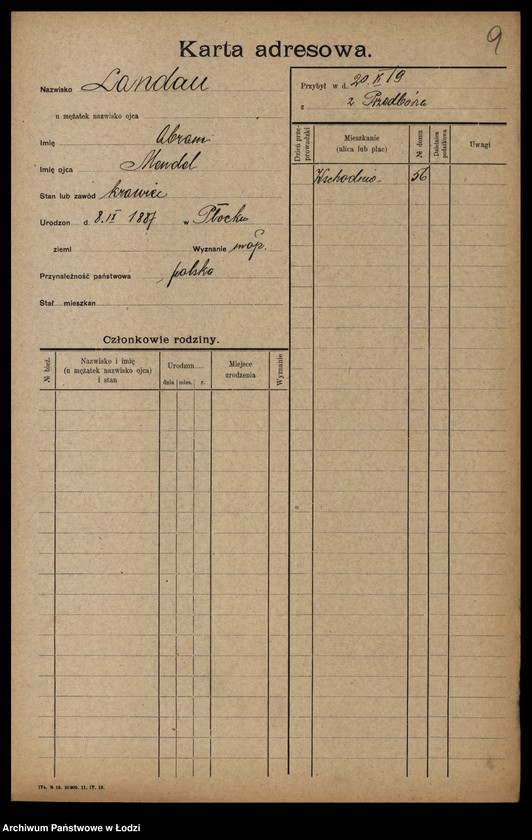 9
Karta adresowa.
Nazwisko Landau
u mężatek nazwisko ojca
Imię Abram
Imię ojca Mendel
Stan lub zawód krawiec
Urodzon d. 8.IX 1887 w Płocku
ziemi Wyznanie mojż.
Przynależność państwowa polska
Stał. mieszkan
Przybył w d. 20.X/19
z z Przedborza
Dzień przeprowadzki
Mieszkanie (ulica lub plac)
№ domu
Dzielnica podatkowa
Uwagi
Wschodnia 56
Członkowie rodziny.
№ bież.
Nazwisko i imię
(u mężatek nazwisko ojca)
i stan
Urodzon
dnia mies. r.
Miejsce
urodzenia
Wyznanie
Archiwum Państwowe w Łodzi